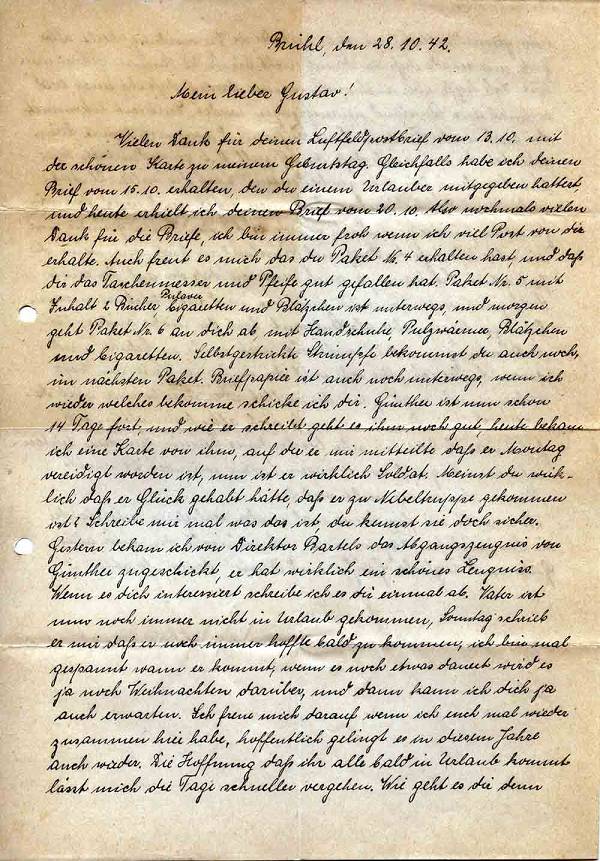 Brühl, den 28.10.42.
Mein lieber Gustav!
Vielen Dank für deinen Luftfeldpostbrief vom 13.10. mit
der schönen Karte zu meinem Geburtstag. Gleichfalls habe ich deinen
Brief vom 15.10. erhalten, den du einem Urlauber mitgegeben hattest,
und heute erhielt ich deinen Brief vom 20.10. Also nochmals vielen
Dank für die Briefe, ich bin immer froh wenn ich viel Post von dir
erhalte. Auch freut es mich das du Paket Nr. 4 erhalten hast, und daß
dir das Taschenmesser und Pfeife gut gefallen hat. Paket Nr. 5 mit
Pulover
Inhalt 2 Bücher Cigaretten und Plätzchen ist unterwegs, und morgen
geht Paket Nr. 6 an dich ab mit Handschuhe, Pulzwärmer, Plätzchen
und Cigaretten. Selbstgestrickte Strümpfe bekommst du auch noch,
im nächsten Paket. Briefpapier ist auch noch unterwegs, wenn ich
wieder welches bekomme schicke ich dir. Günther ist nun schon
14 Tage fort, und wie er schreibt geht es ihm noch gut, heute bekam
ich eine Karte von ihm, auf der er mir mitteilte daß er Montag
vereidigt worden ist, nun ist er wirklich Soldat. Meinst du wirk-
lich daß er Glück gehabt hätte, daß er zu Nebeltruppe gekommen
ist? Schreibe mir mal was das ist, du kennst sie doch sicher.
Gestern bekam ich von Direktor Bartels das Abgangszeugnis von
Günther zugeschickt, er hat wirklich ein schönes Zeugniss.
Wenn es dich interessiert schreibe ich es dir einmal ab. Vater ist
nun noch immer nicht in Urlaub gekommen, Sonntag schrieb
er mir daß er noch immer hoffte bald zu kommen, ich bin mal
gespannt wann er kommt, wenn es noch etwas dauert wird es
ja noch Weihnachten darüber, und dann kann ich dich ja
auch erwarten. Ich freue mich darauf wenn ich euch mal wieder
zusammen hier habe, hoffentlich gelingt es in diesem Jahre
auch wieder. Die Hoffnung daß ihr alle bald in Urlaub kommt
lässt mich die Tage schneller vergehen. Wie geht es dir denn